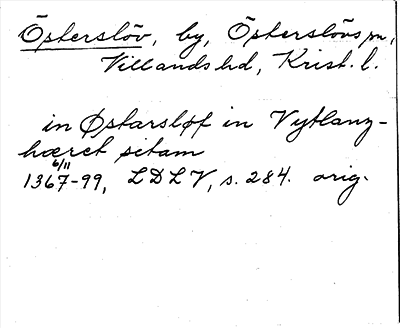 Österslöv, by, Österslövs sn,
Villands hd, Krist. l.
in Østarsløf in Vytlanz-
hæret sitam
6/11
1367-99, LDLV, s. 284. orig.